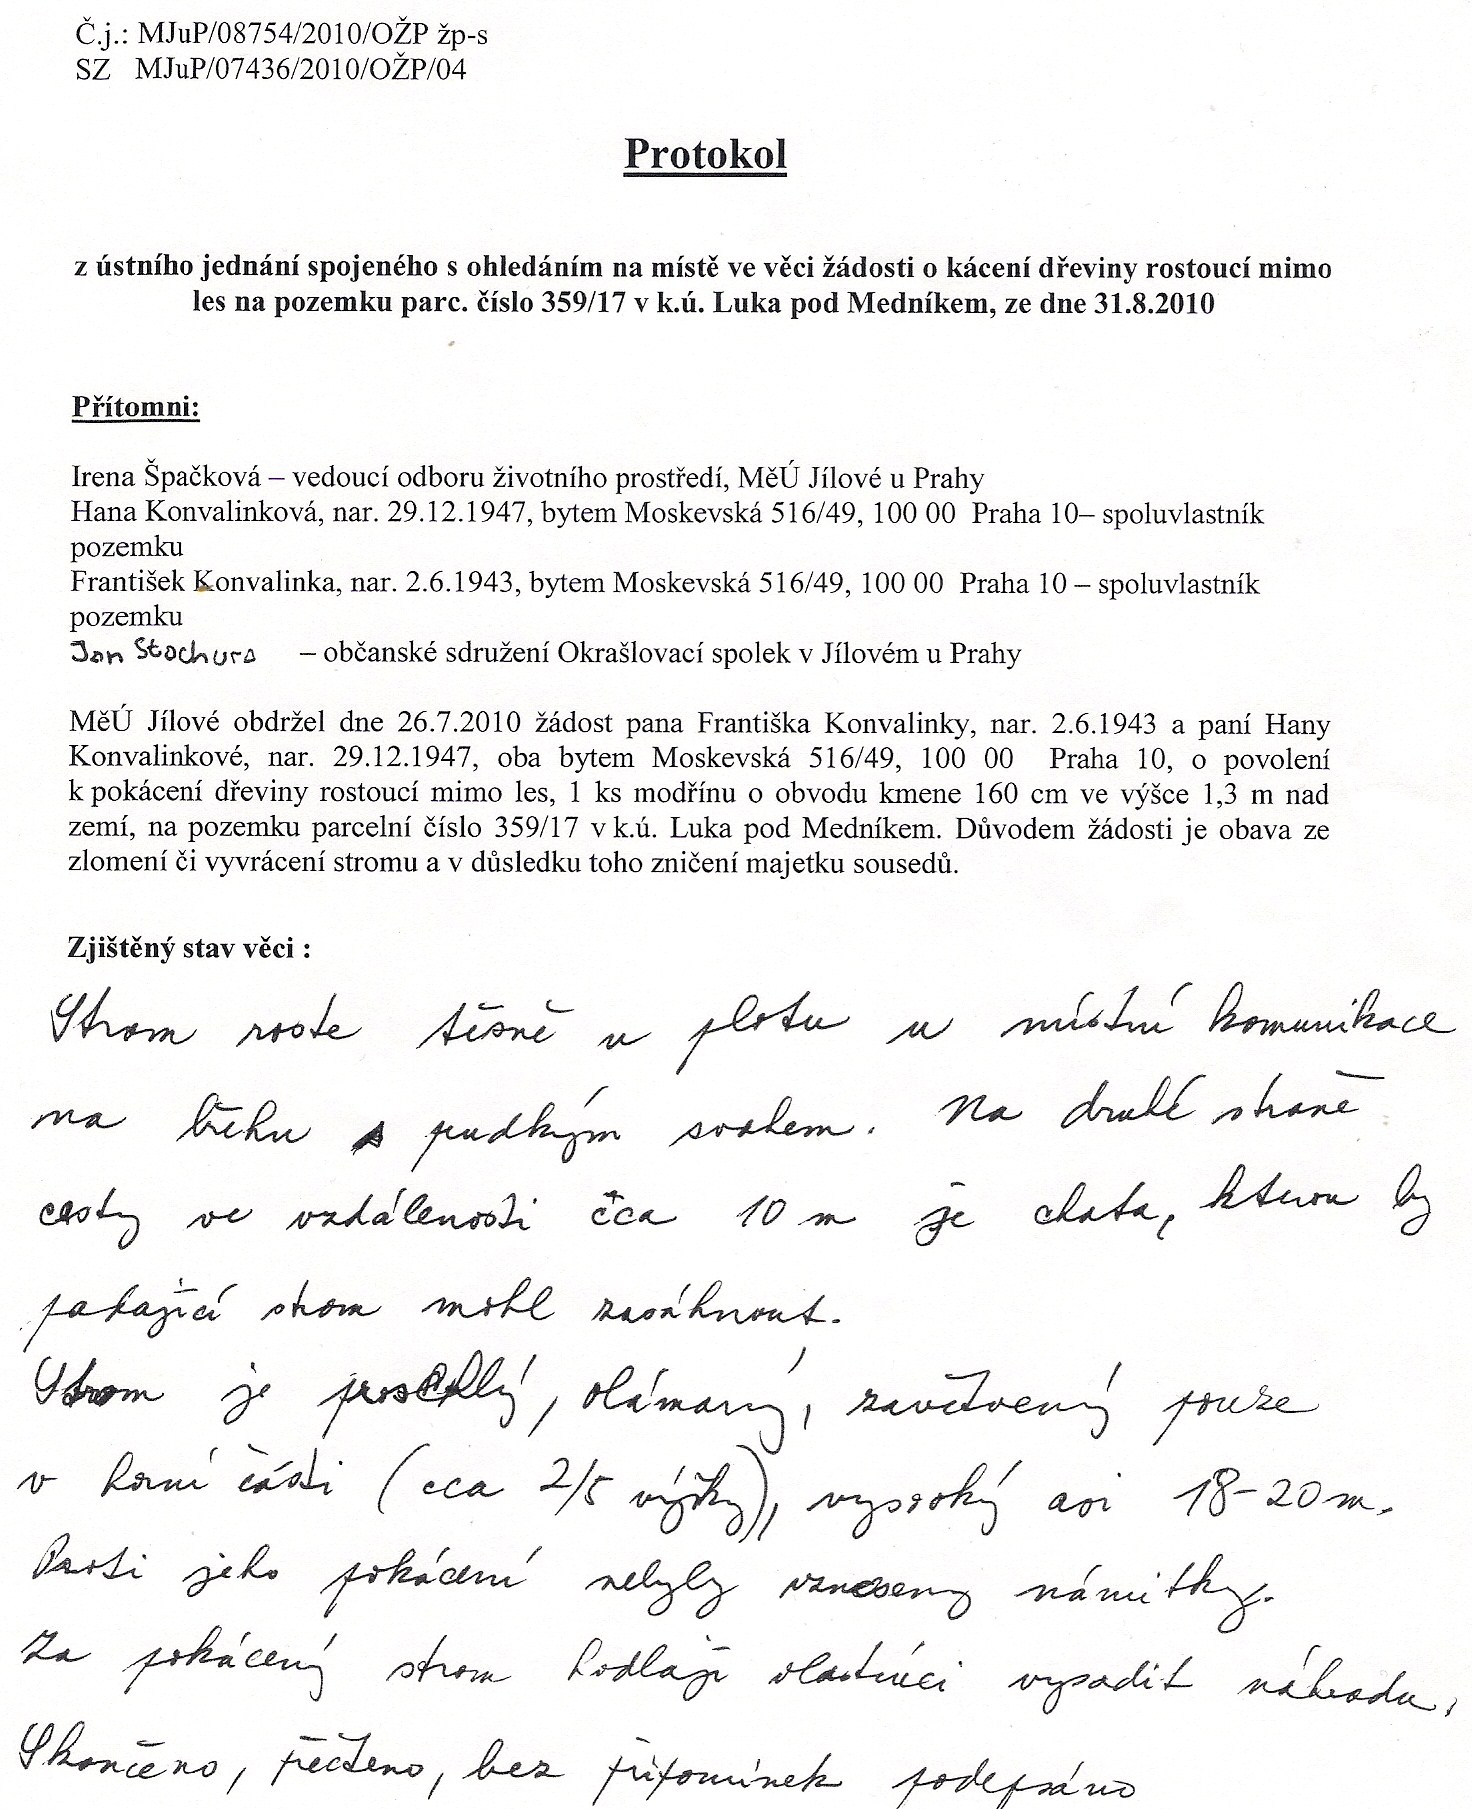 Č.j.: MJuP/08754/2010/OŽP žp-s
SZ MJuP/07436/2010/OŽP/04
Protokol
z ústního jednání spojeného s ohledáním na místě ve věci žádosti o kácení dřeviny rostoucí mimo
les na pozemku parc. číslo 359/17 v k.ú. Luka pod Medníkem, ze dne 31.8.2010
Přítomni:
Irena Špačková – vedoucí odboru životního prostředí, MěÚ Jílové u Prahy
Hana Konvalinková, nar. 29.12.1947, bytem Moskevská 516/49, 100 00 Praha 10– spoluvlastník
pozemku
František Konvalinka, nar. 2.6.1943, bytem Moskevská 516/49, 100 00 Praha 10 – spoluvlastník
pozemku
Jan Stachura – občanské sdružení Okrašlovací spolek v Jílovém u Prahy
MěÚ Jílové obdržel dne 26.7.2010 žádost pana Františka Konvalinky, nar. 2.6.1943 a paní Hany
Konvalinkové, nar. 29.12.1947, oba bytem Moskevská 516/49, 100 00 Praha 10, o povolení
k pokácení dřeviny rostoucí mimo les, 1 ks modřínu o obvodu kmene 160 cm ve výšce 1,3 m nad
zemí, na pozemku parcelní číslo 359/17 v k.ú. Luka pod Medníkem. Důvodem žádosti je obava ze
zlomení či vyvrácení stromu a v důsledku toho zničení majetku sousedů.
Zjištěný stav věci :
Strom roste těsně u plotu u místní komunikace
na břehu s prudkým svahem. Na druhé straně
cesty ve vzdálenosti cca 10 m je chata, kterou by
padající strom mohl zasáhnout.
Strom je proschlý, olámaný, zavětvený pouze
v horní části (cca 2/5 výšky), vysoký asi 18-20 m.
Proti jeho pokácení nebyly vzneseny námitky.
Za pokácený strom hodlají vlastníci vysadit náhradu.
Skončeno, přečteno, bez připomínek podepsáno